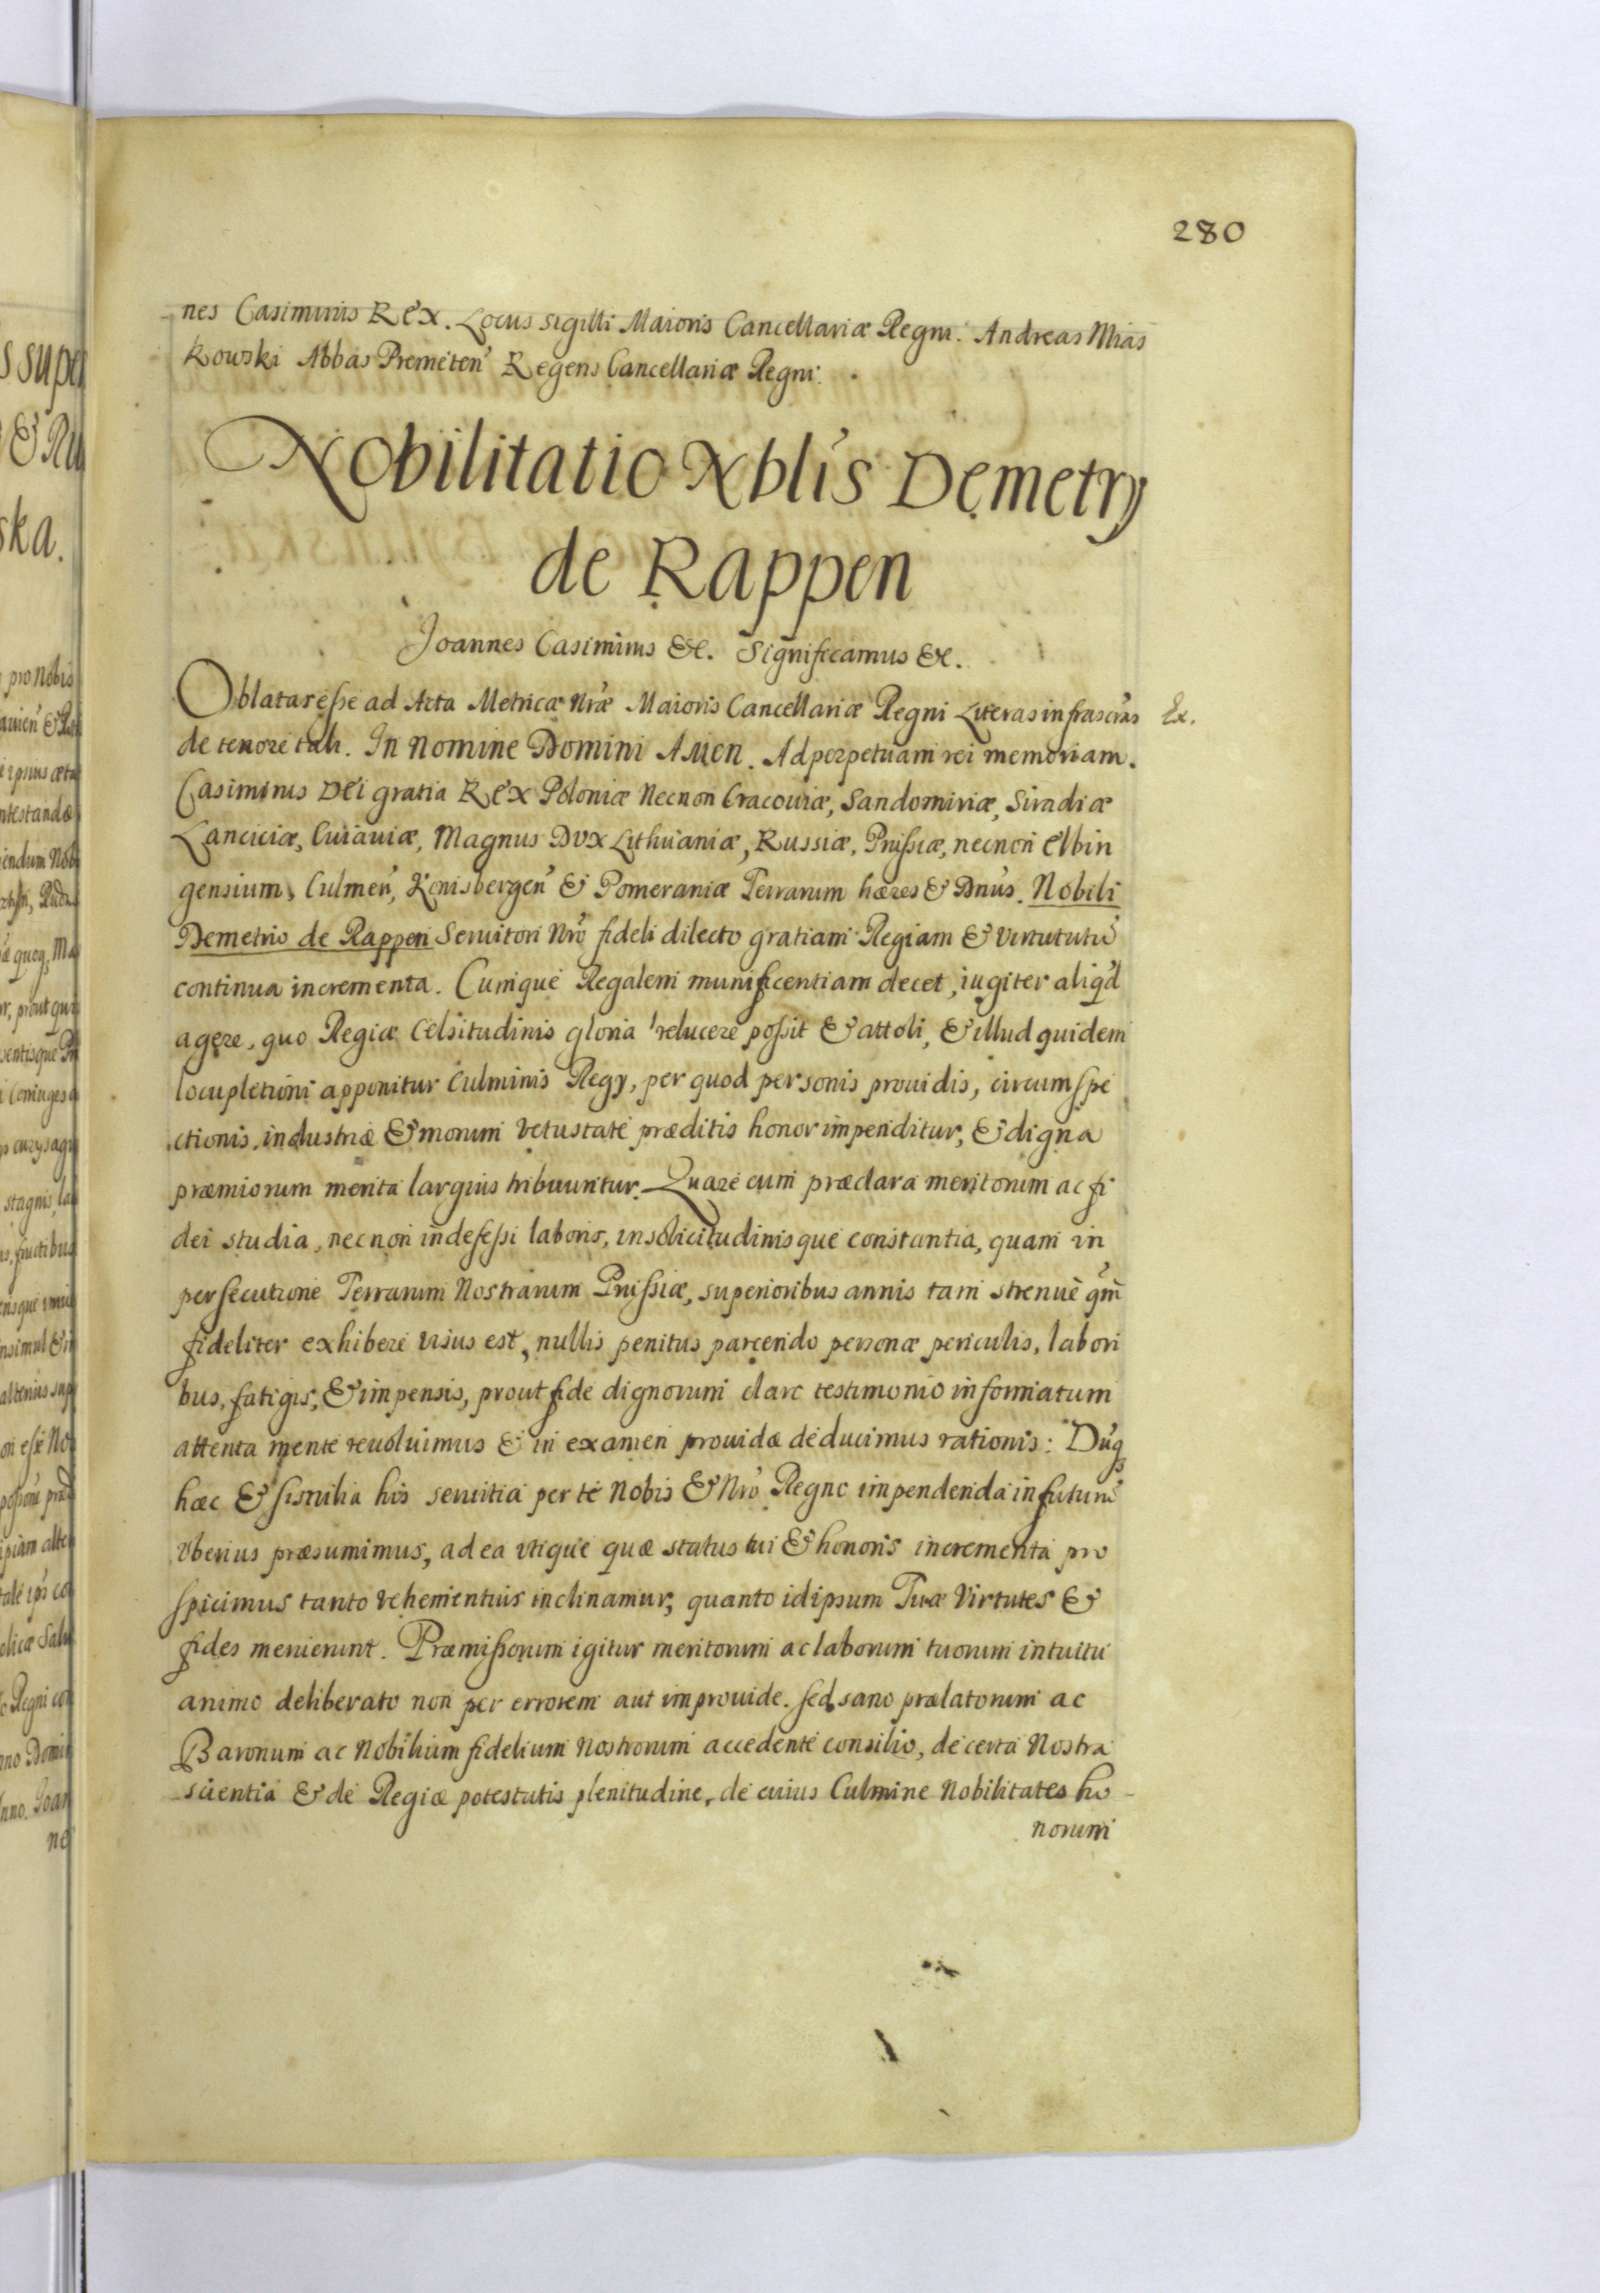 280
nes Casimirus Rex. Locus sigilli Maioris Cancellariæ Regni. Andreas Mias
kowski Abbas Premeten̄ Regens Cancellariæ Regni.
Nobilitatio Nblis Demetrij
de Rappen
Joannes Casimirus &c. Significamus &c.
Oblatas esse ad Acta Metricæ Nræ Maioris Cancellariæ Regni Literas infrascras Ex.
de tenore tali. In Nomine Domini Amen. Ad perpetuam rei memoriam.
Casimirus Dei gratia Rex Poloniæ Necnon Cracouiæ, Sandomiriæ, Siradiæ
Lanciciæ, Cuiauiæ, Magnus Dux Lithuaniæ, Russiæ, Prussiæ, necnon Elbin
gensium, Culmen̄, Konisbergen̄ & Pomeraniæ Terrarum hæres & Dnus. Nobili
Demetrio de Rappen Seruitori Nro fideli dilecto gratiam Regiam & virtututū
continua incrementa. Cumque Regalem munificentiam decet, iugiter aliqd
agere, quo Regiæ Celsitudinis gloria relucere possit & attoli, & illud quidem
locupletioni apponitur Culminis Regij, per quod personis prouidis, circumspe
ctionis, industriæ & morum vetustate præditis honor impenditur, & digna
præmiorum merita largius tribuuntur. Quare cum præclara meritorum ac fi
dei studia, necnon indefessi laboris, insolicitudinisque constantia, quam in
persecutione Terrarum Nostrarum Prussiæ, superioribus annis tam strenuè qm̄
fideliter exhibere visus est, nullis penitus parcendo personæ periculis, labori
bus, fatigis, & impensis, prout fide dignorum claro testimonio informatum
attenta mente reuoluimus & in examen prouidæ deducimus rationis: Dūq
hæc & similia his seruitia per te Nobis & Nro Regno impendenda in futurū
vberius præsumimus, ad ea vtique quæ status tui & honoris incrementa pro
spicimus tanto vehementius inclinamur, quanto idipsum Tuæ Virtutes &
fides meruerunt. Præmissorum igitur meritorum ac laborum tuorum intuitu
animo deliberato non per errorem aut improuide. sed sano prælatorum ac
Baronum ac Nobilium fidelium Nostrorum accedente consilio, de certa Nostra
scientia & de Regiæ potestatis plenitudine, de cuius Culmine Nobilitates ho
norum